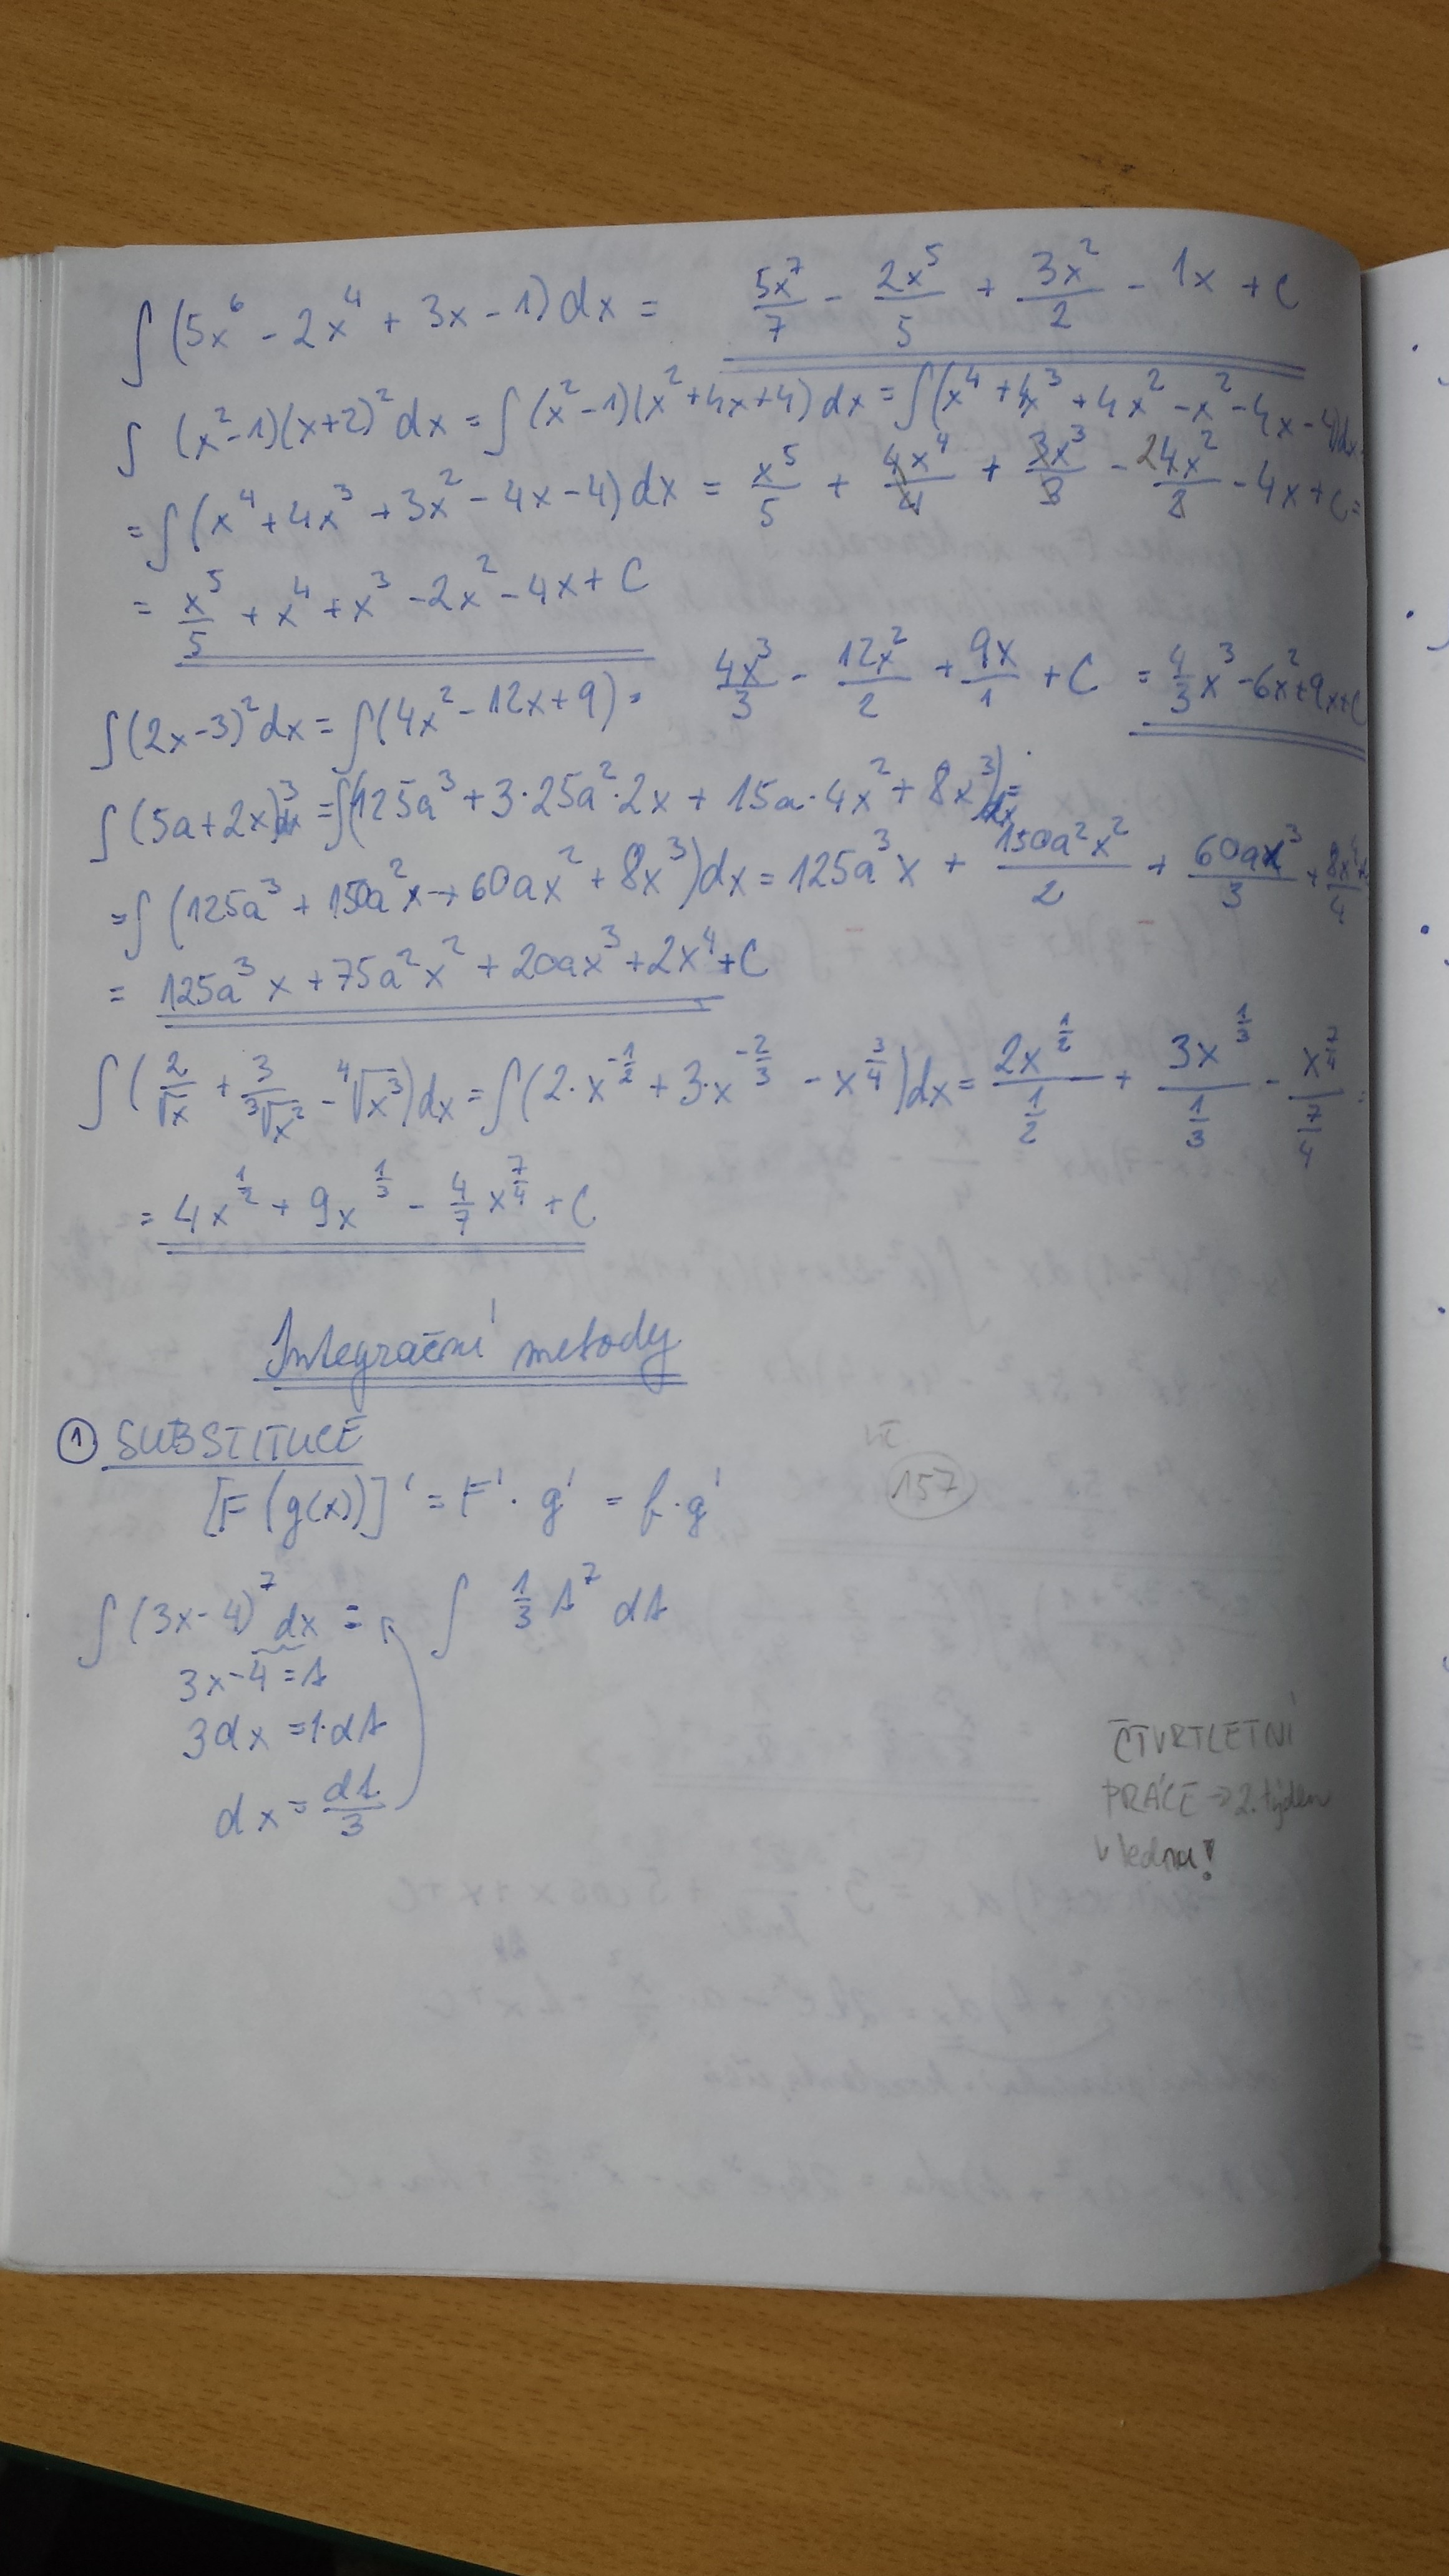 ∫ (5x⁶ - 2x⁴ + 3x - 1) dx = 5x⁷/7 - 2x⁵/5 + 3x²/2 - 1x + C
∫ (x²-1)(x+2)² dx = ∫ (x²-1)(x²+4x+4) dx = ∫ (x⁴ + 4x³ + 4x² - x² - 4x - 4) dx
= ∫ (x⁴ + 4x³ + 3x² - 4x - 4) dx = x⁵/5 + 4x⁴/4 + 3x³/3 - 24x²/2 - 4x + C =
= x⁵/5 + x⁴ + x³ - 2x² - 4x + C
∫ (2x-3)² dx = ∫ (4x² - 12x + 9) = 4x³/3 - 12x²/2 + 9x/1 + C = 4/3 x³ - 6x² + 9x + C
∫ (5a+2x)³ dx = ∫ (125a³ + 3·25a²·2x + 15a·4x² + 8x³) dx =
= ∫ (125a³ + 150a²x + 60ax² + 8x³) dx = 125a³x + 150a²x²/2 + 60ax³/3 + 8x⁴/4
= 125a³x + 75a²x² + 20ax³ + 2x⁴ + C
∫ (2/√x + 3/∛x² - ∜x³) dx = ∫ (2·x^(-1/2) + 3·x^(-2/3) - x^(3/4)) dx = 2x^(1/2)/(1/2) + 3x^(1/3)/(1/3) - x^(7/4)/(7/4) =
= 4x^(1/2) + 9x^(1/3) - 4/7 x^(7/4) + C
Integrační metody
① SUBSTITUCE
[F(g(x))]' = F'· g' = f·g'
157
∫ (3x-4)⁷ dx = ∫ 1/3 t⁷ dt
3x-4 = t
3dx = 1·dt
dx = dt/3
ČTVRTLETNÍ
PRÁCE → 2. týden
v lednu!